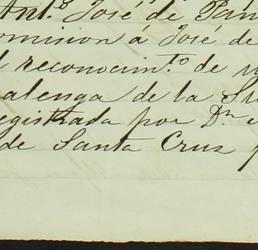 Ant.º José de
omision á José de
reconocim.to de
alenga de la
egistrada por Dn
de Santa Cruz